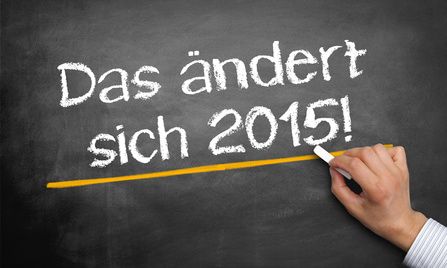 Das ändert
sich 2015!